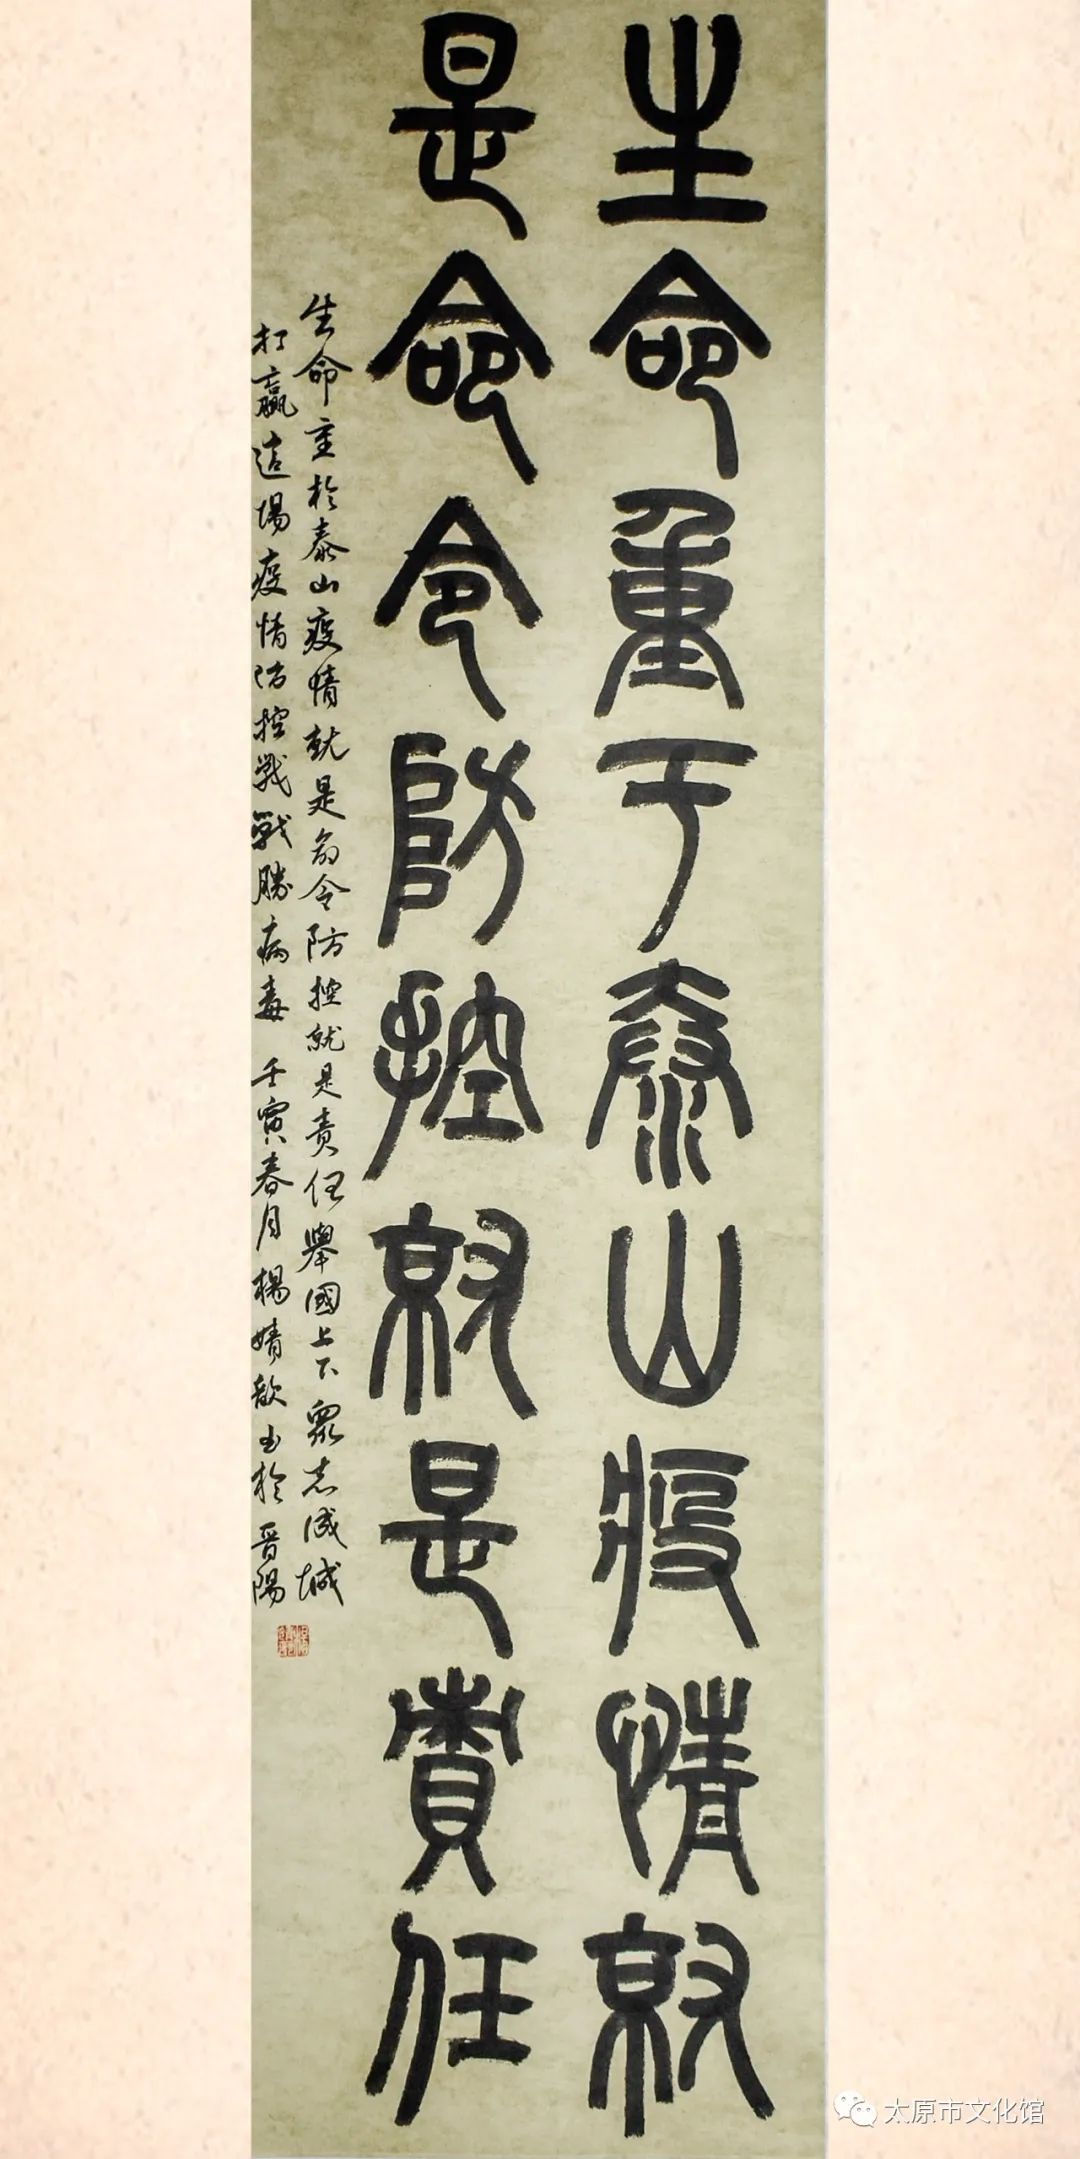 生命重于泰山疫情就
是命令防控就是責任
生命重於泰山疫情就是命令防控就是责任舉國上下眾志成城
打贏這場疫情防控戰戰勝病毒 壬寅春月楊婧歆书於晋陽
太原市文化馆